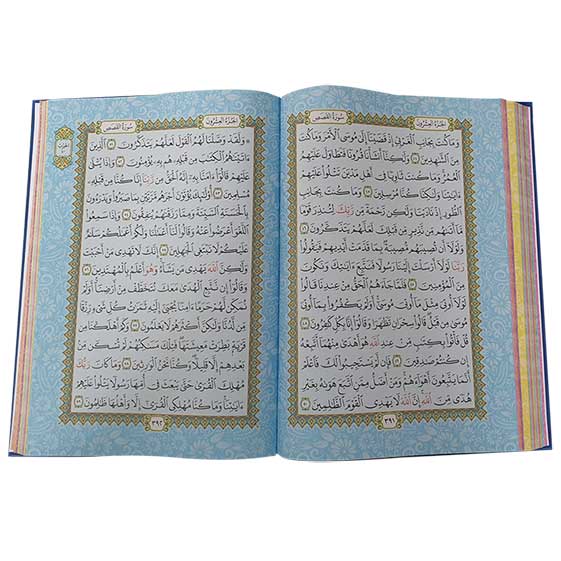 الجزء العشرون
سورة القصص
وَمَا كُنتَ بِجَانِبِ ٱلْغَرْبِيِّ إِذْ قَضَيْنَآ إِلَىٰ مُوسَى ٱلْأَمْرَ وَمَا كُنتَ
مِنَ ٱلشَّٰهِدِينَ ٤٤ وَلَٰكِنَّآ أَنشَأْنَا قُرُونًا فَتَطَاوَلَ عَلَيْهِمُ
ٱلْعُمُرُ وَمَا كُنتَ ثَاوِيًا فِيٓ أَهْلِ مَدْيَنَ تَتْلُواْ عَلَيْهِمْ
ءَايَٰتِنَا وَلَٰكِنَّا كُنَّا مُرْسِلِينَ ٤٥ وَمَا كُنتَ بِجَانِبِ
ٱلطُّورِ إِذْ نَادَيْنَا وَلَٰكِن رَّحْمَةً مِّن رَّبِّكَ لِتُنذِرَ قَوْمًا
مَّآ أَتَىٰهُم مِّن نَّذِيرٍ مِّن قَبْلِكَ لَعَلَّهُمْ يَتَذَكَّرُونَ ٤٦
وَلَوْلَآ أَن تُصِيبَهُم مُّصِيبَةٌ بِمَا قَدَّمَتْ أَيْدِيهِمْ فَيَقُولُواْ
رَبَّنَا لَوْلَآ أَرْسَلْتَ إِلَيْنَا رَسُولًا فَنَتَّبِعَ ءَايَٰتِكَ وَنَكُونَ
مِنَ ٱلْمُؤْمِنِينَ ٤٧ فَلَمَّا جَآءَهُمُ ٱلْحَقُّ مِنْ عِندِنَا قَالُواْ
لَوْلَآ أُوتِيَ مِثْلَ مَآ أُوتِيَ مُوسَىٰٓ أَوَلَمْ يَكْفُرُواْ بِمَآ أُوتِيَ
مُوسَىٰ مِن قَبْلُ قَالُواْ سِحْرَانِ تَظَٰهَرَا وَقَالُوٓاْ إِنَّا بِكُلٍّ كَٰفِرُونَ ٤٨
قُلْ فَأْتُواْ بِكِتَٰبٍ مِّنْ عِندِ ٱللَّهِ هُوَ أَهْدَىٰ مِنْهُمَآ أَتَّبِعْهُ
إِن كُنتُمْ صَٰدِقِينَ ٤٩ فَإِن لَّمْ يَسْتَجِيبُواْ لَكَ فَٱعْلَمْ
أَنَّمَا يَتَّبِعُونَ أَهْوَآءَهُمْ وَمَنْ أَضَلُّ مِمَّنِ ٱتَّبَعَ هَوَىٰهُ بِغَيْرِ
هُدًى مِّنَ ٱللَّهِ إِنَّ ٱللَّهَ لَا يَهْدِي ٱلْقَوْمَ ٱلظَّٰلِمِينَ ٥٠
٣٩١
الجزء العشرون
سورة القصص
۞ وَلَقَدْ وَصَّلْنَا لَهُمُ ٱلْقَوْلَ لَعَلَّهُمْ يَتَذَكَّرُونَ ٥١ ٱلَّذِينَ
ءَاتَيْنَٰهُمُ ٱلْكِتَٰبَ مِن قَبْلِهِۦ هُم بِهِۦ يُؤْمِنُونَ ٥٢ وَإِذَا يُتْلَىٰ
عَلَيْهِمْ قَالُوٓاْ ءَامَنَّا بِهِۦٓ إِنَّهُ ٱلْحَقُّ مِن رَّبِّنَآ إِنَّا كُنَّا مِن قَبْلِهِۦ
مُسْلِمِينَ ٥٣ أُوْلَٰٓئِكَ يُؤْتَوْنَ أَجْرَهُم مَّرَّتَيْنِ بِمَا صَبَرُواْ وَيَدْرَءُونَ
بِٱلْحَسَنَةِ ٱلسَّيِّئَةَ وَمِمَّا رَزَقْنَٰهُمْ يُنفِقُونَ ٥٤ وَإِذَا سَمِعُواْ
ٱللَّغْوَ أَعْرَضُواْ عَنْهُ وَقَالُواْ لَنَآ أَعْمَٰلُنَا وَلَكُمْ أَعْمَٰلُكُمْ سَلَٰمٌ
عَلَيْكُمْ لَا نَبْتَغِي ٱلْجَٰهِلِينَ ٥٥ إِنَّكَ لَا تَهْدِي مَنْ أَحْبَبْتَ
وَلَٰكِنَّ ٱللَّهَ يَهْدِي مَن يَشَآءُ وَهُوَ أَعْلَمُ بِٱلْمُهْتَدِينَ ٥٦
وَقَالُوٓاْ إِن نَّتَّبِعِ ٱلْهُدَىٰ مَعَكَ نُتَخَطَّفْ مِنْ أَرْضِنَآ أَوَلَمْ
نُمَكِّن لَّهُمْ حَرَمًا ءَامِنًا يُجْبَىٰٓ إِلَيْهِ ثَمَرَٰتُ كُلِّ شَيْءٍ رِّزْقًا
مِّن لَّدُنَّا وَلَٰكِنَّ أَكْثَرَهُمْ لَا يَعْلَمُونَ ٥٧ وَكَمْ أَهْلَكْنَا مِن
قَرْيَةٍۭ بَطِرَتْ مَعِيشَتَهَا فَتِلْكَ مَسَٰكِنُهُمْ لَمْ تُسْكَن مِّنۢ
بَعْدِهِمْ إِلَّا قَلِيلًا وَكُنَّا نَحْنُ ٱلْوَٰرِثِينَ ٥٨ وَمَا كَانَ رَبُّكَ
مُهْلِكَ ٱلْقُرَىٰ حَتَّىٰ يَبْعَثَ فِيٓ أُمِّهَا رَسُولًا يَتْلُواْ عَلَيْهِمْ
ءَايَٰتِنَا وَمَا كُنَّا مُهْلِكِي ٱلْقُرَىٰٓ إِلَّا وَأَهْلُهَا ظَٰلِمُونَ ٥٩
٣٩٢